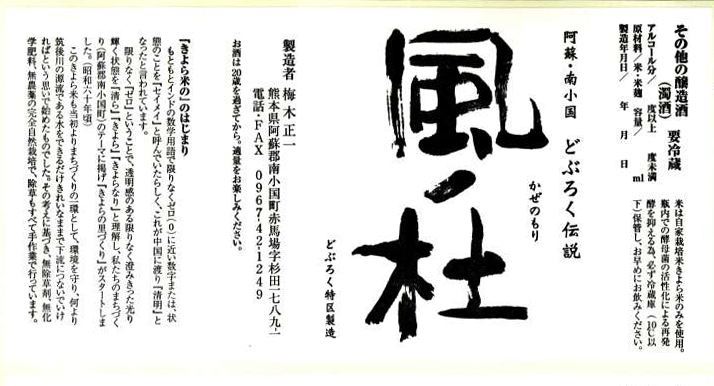 その他の醸造酒
(濁酒) 要冷蔵
アルコール分/ 度以上 度未満
原材料/米・米麹 容量/ ml
製造年月日/ 年 月 日
米は自家栽培米きよら米のみを使用。
瓶内での酵母菌の活性化による再発
酵を抑える為、必ず冷蔵庫(10℃以
下)保管し、お早めにお飲みください。
阿蘇・南小国 どぶろく伝説
かぜのもり
風ノ杜
どぶろく特区製造
製造者 梅木正一
熊本県阿蘇郡南小国町赤馬場字杉田一七八九-一
電話・FAX 0967-42-1249
お酒は20歳を過ぎてから。適量をお楽しみください。
『きよら米の』のはじまり
もともとインドの数学用語で限りなくゼロ(0)に近い数字または、状
態のことを「セイメイ」と呼んでいたらしく、これが中国に渡り『清明』と
なったと言われています。
限りなく『ゼロ』ということで、透明感のある限りなく澄みきった光り
輝く状態を『清ら』『きよら』『きよらなり』と理解し、私たちのまちづく
り(阿蘇郡南小国町)のテーマに掲げ『きよらの里づくり』がスタートしま
した。(昭和六十年頃)
このきよら米も当初よりまちづくりの一環として、環境を守り、何より
筑後川の源流である水をできるだけきれいなままで下流につないでいけ
ればという思いで始めたものでした。その考えに基づき、無除草剤、無化
学肥料、無農薬の完全自然栽培で、除草もすべて手作業で行っています。